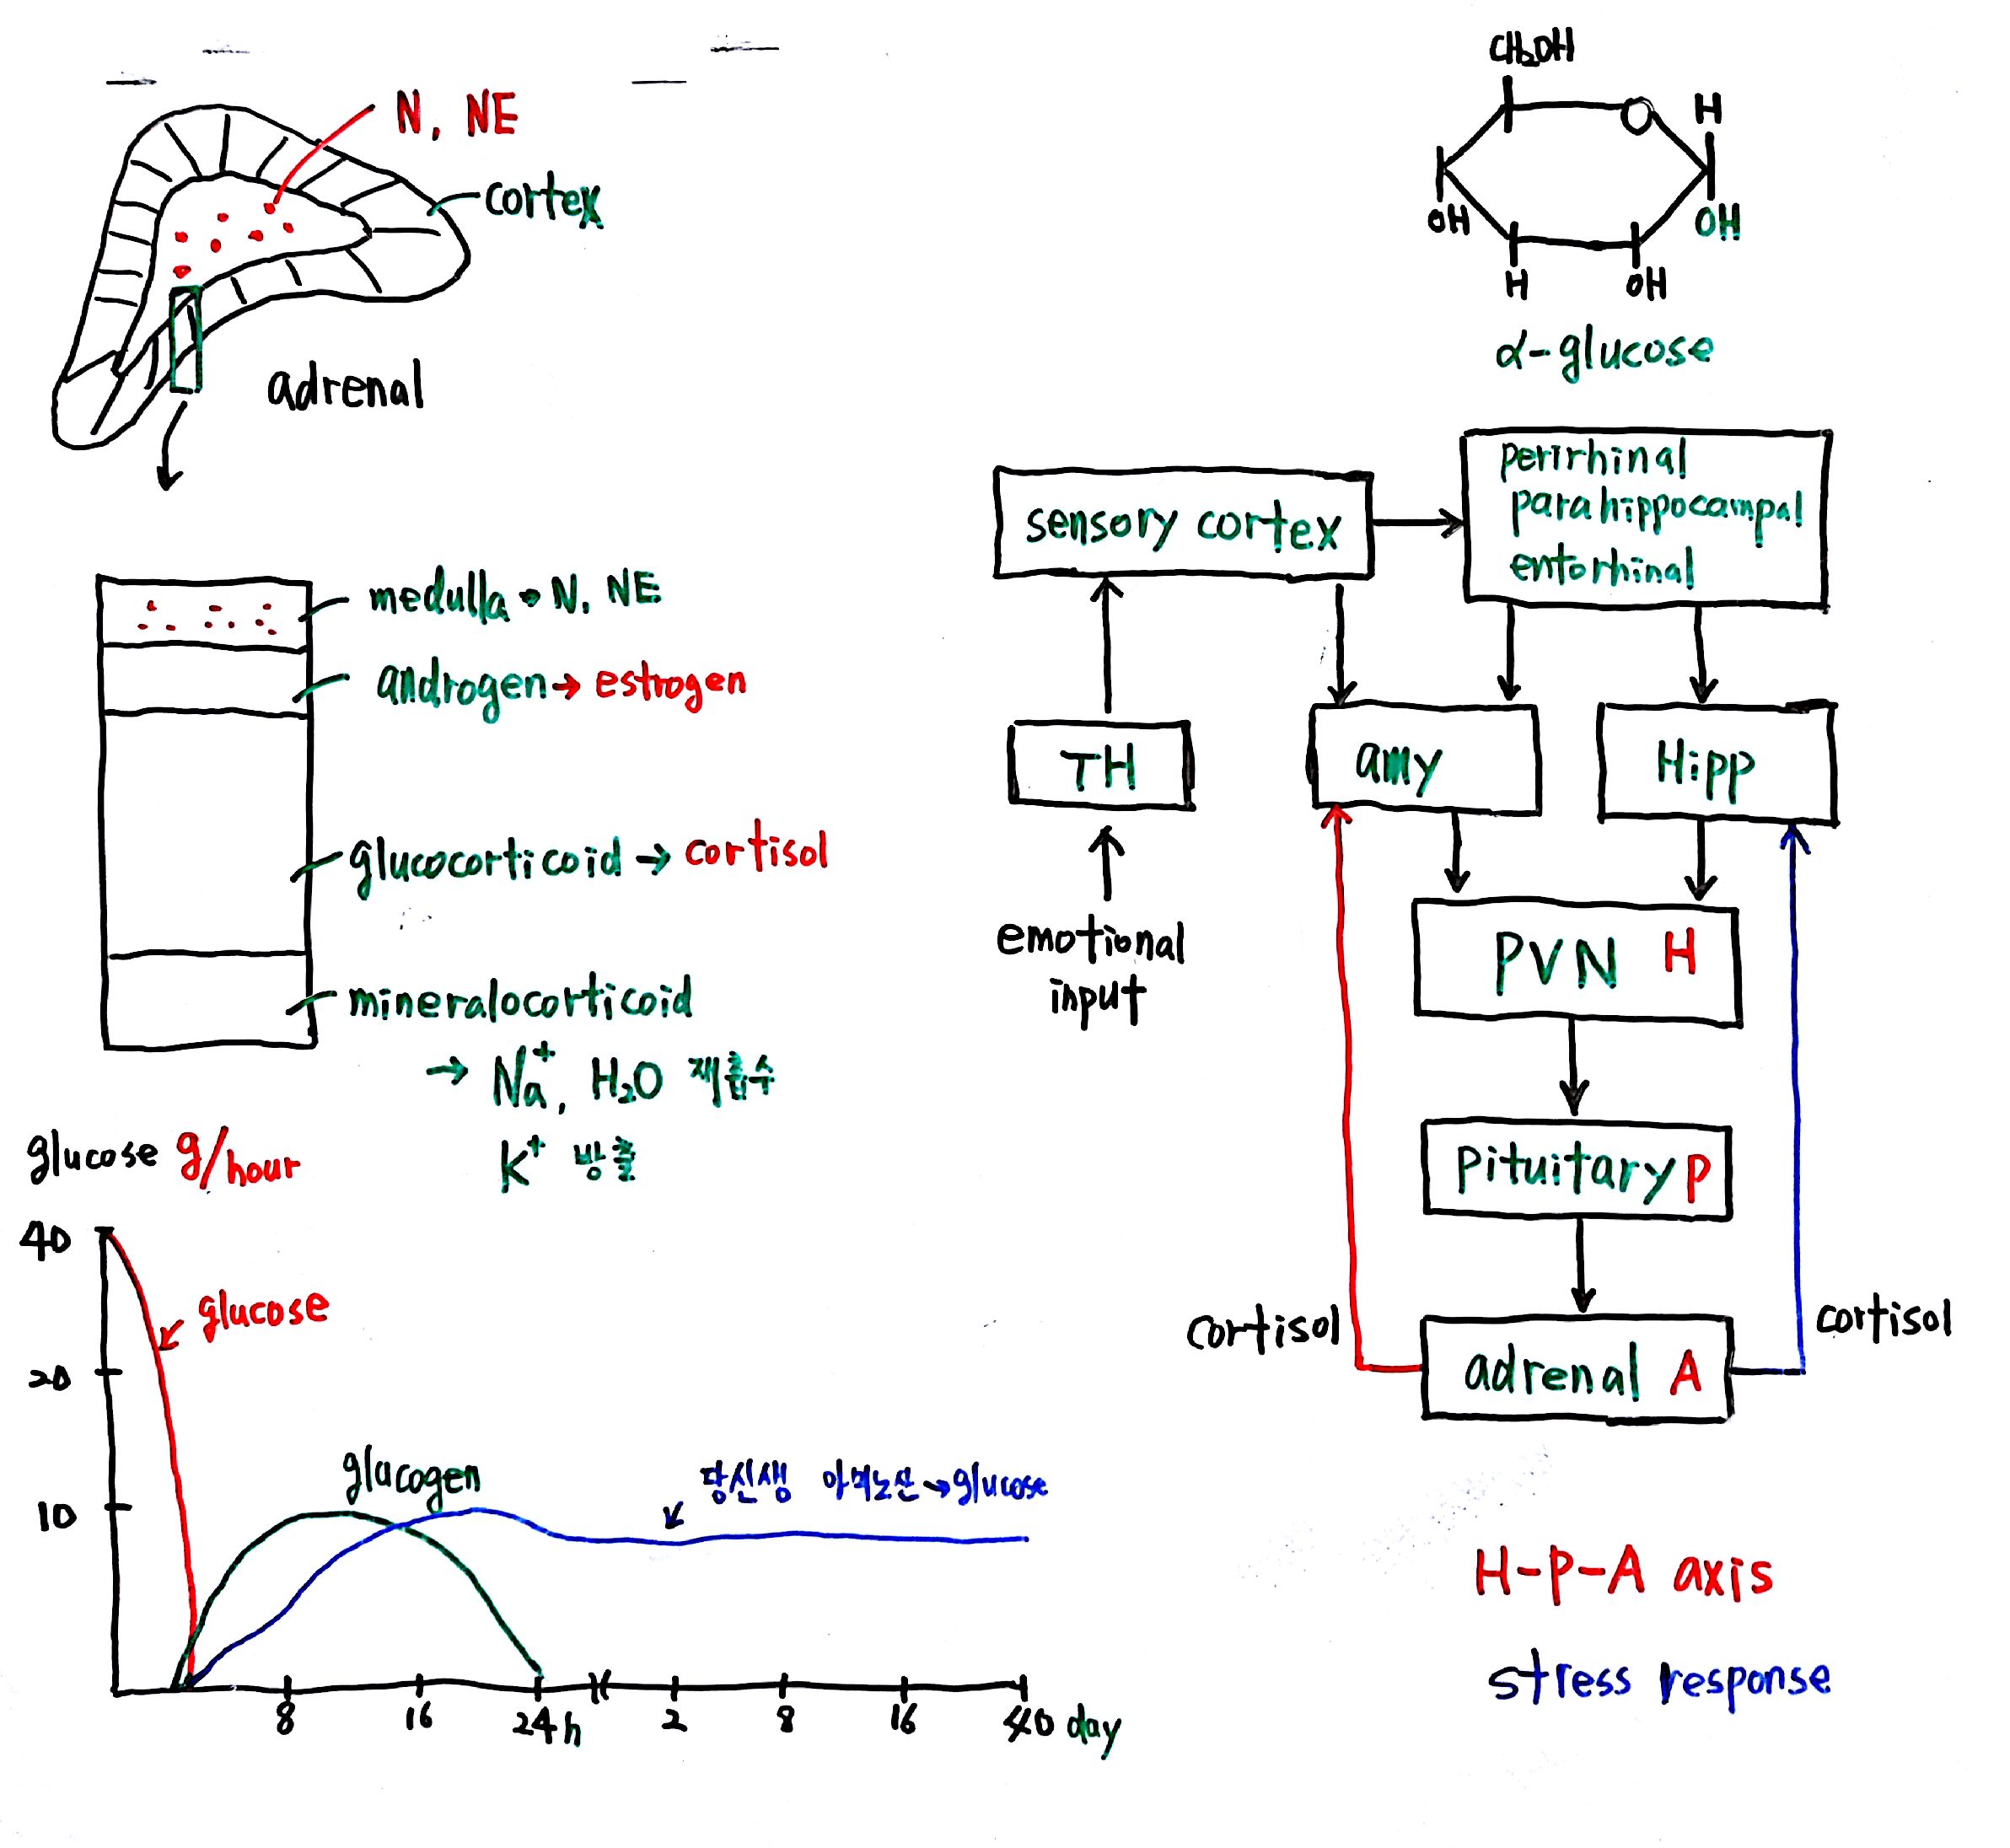 N, NE
cortex
adrenal
medulla → N, NE
androgen → estrogen
glucocorticoid → cortisol
mineralocorticoid
→ Na⁺, H₂O 재흡수
K⁺ 방출
glucose g/hour
40
20
10
glucose
glucogen
당신생 아미노산→glucose
8
16
24h
2
8
16
40 day
CH₂OH
O
H
OH
OH
H
OH
α-glucose
sensory cortex
perirhinal
parahippocampal
entorhinal
TH
amy
Hipp
emotional
input
PVN H
pituitary P
adrenal A
cortisol
cortisol
H-P-A axis
stress response